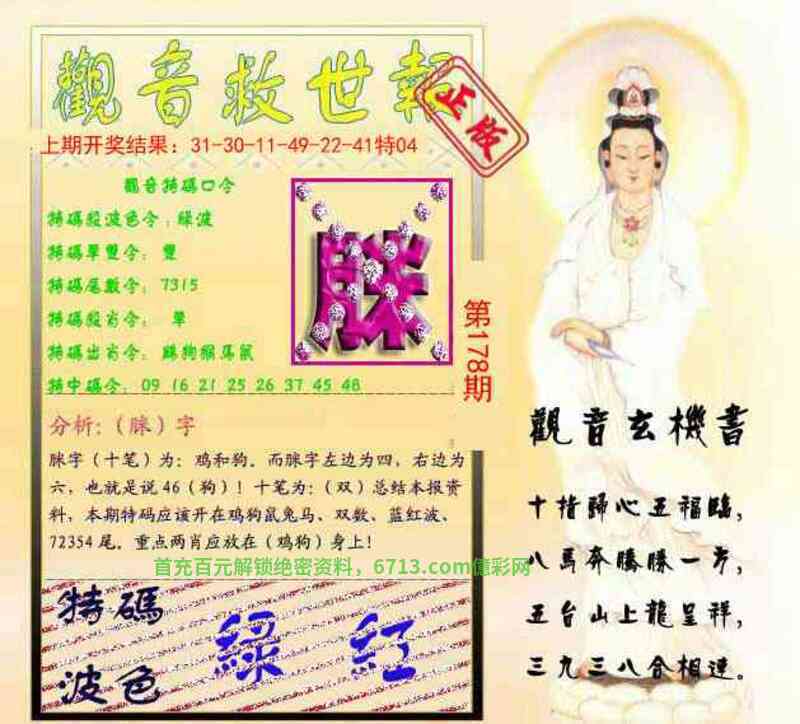 觀音救世報
正版
上期开奖结果：31-30-11-49-22-41特04
觀音特碼口令
特碼段波色令：綠波
特碼單雙令：雙
特碼尾數令：7315
特碼段肖令：單
特碼出肖令：雞狗猴馬鼠
特中碼令：09 16 21 25 26 37 45 48
脒
第178期
分析:（脒）字
脒字（十笔）为：鸡和狗。而脒字左边为四，右边为
六，也就是说46（狗）！十笔为：（双）总结本报资
料，本期特码应该开在鸡狗鼠兔马、双数、蓝红波、
72354尾。重点两肖应放在（鸡狗）身上！
首充百元解锁绝密资料，6713.com億彩网
特碼
波色
綠 紅
觀音玄機書
十指歸心五福臨，
八馬奔騰勝一步，
五台山上龍呈祥，
三九三八合相連。